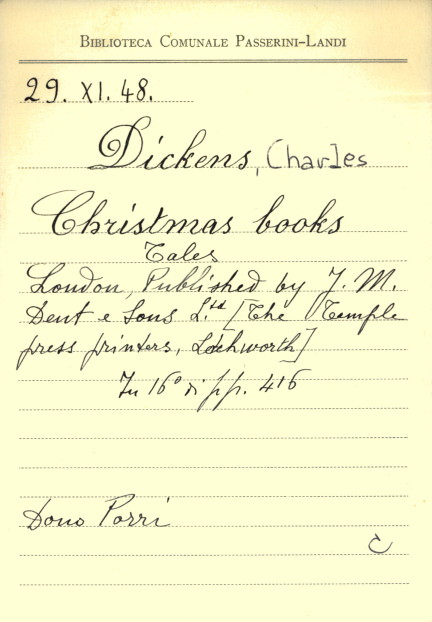 BIBLIOTECA COMUNALE PASSERINI-LANDI
29. XI. 48.
Dickens, Charles
Christmas books
Tales
London, Published by J. M.
Dent e Sons L.td [The Temple
press printers, Letchworth]
In 16° di pp. 416
Dono Porri
C